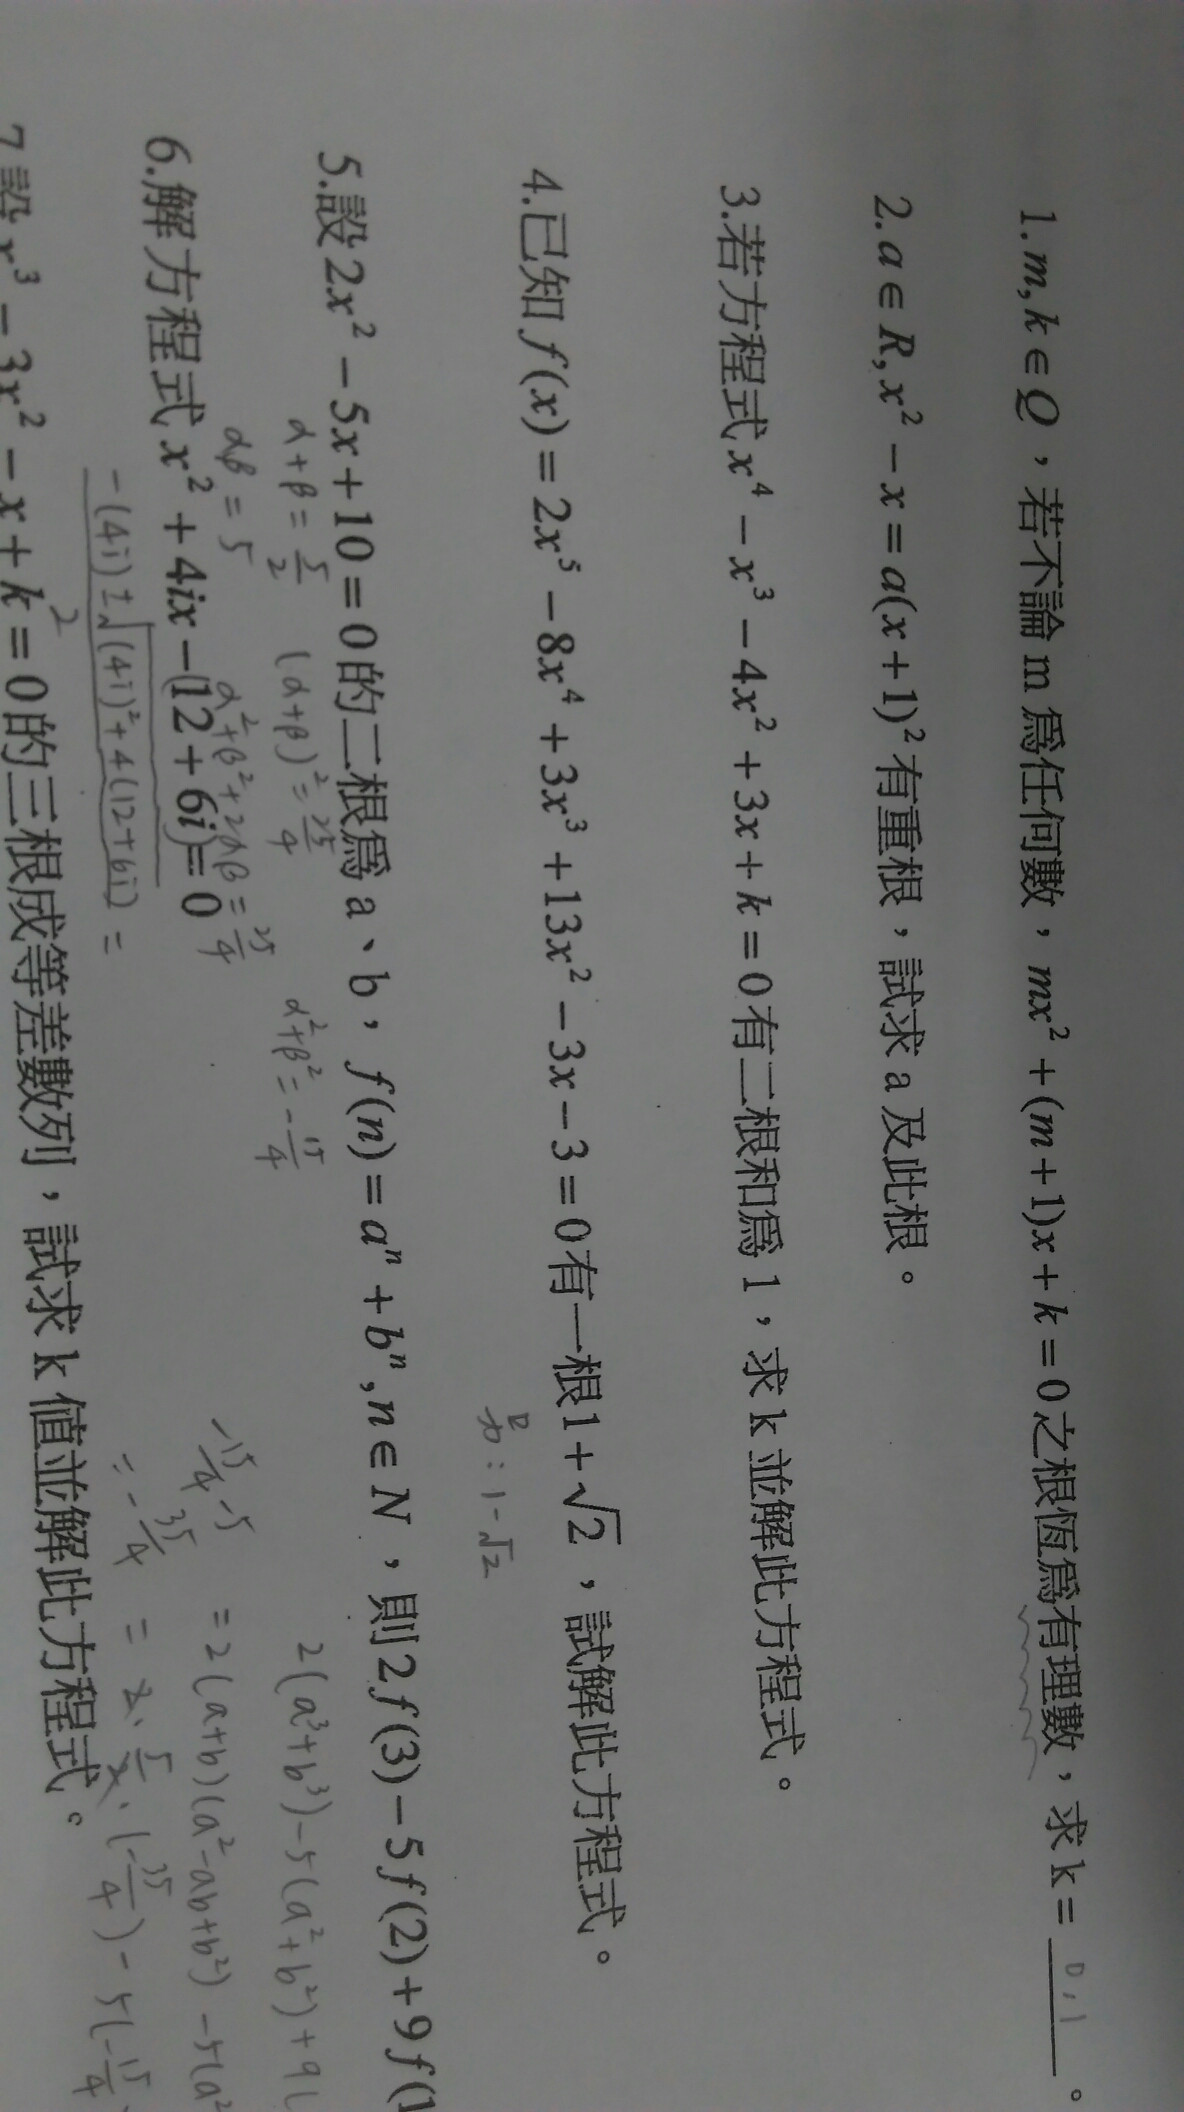 1. m, k ∈ Q，若不論 m 為任何數，mx² + (m + 1)x + k = 0 之根恆為有理數，求 k = 0, 1 。
2. a ∈ R, x² − x = a(x + 1)² 有重根，試求 a 及此根。
3. 若方程式 x⁴ − x³ − 4x² + 3x + k = 0 有二根和為 1，求 k 並解此方程式。
4. 已知 f(x) = 2x⁵ − 8x⁴ + 3x³ + 13x² − 3x − 3 = 0 有一根 1 + √2，試解此方程式。
: 1 - √2
5. 設 2x² − 5x + 10 = 0 的二根為 a、b，f(n) = aⁿ + bⁿ, n ∈ N，則 2f(3) − 5f(2) + 9f(1
α + β = 5/2 (α+β)² = 25/4 α² + β² = -15/4 2(a³+b³) - 5(a²+b²) + 9(
αβ = 5 α² + β² + 2αβ = 25/4 -15/4 - 5 = 2(a+b)(a² - ab + b²) - 5(a²
= -35/4 = 2 · 5/2 · (-35/4) - 5(-15/4
6. 解方程式 x² + 4ix − (12 + 6i) = 0
-(4i) ± √(4i)² + 4(12+6i) =
2
7 設 x³ − 3x² − x + k = 0 的三根成等差數列，試求 k 值並解此方程式。